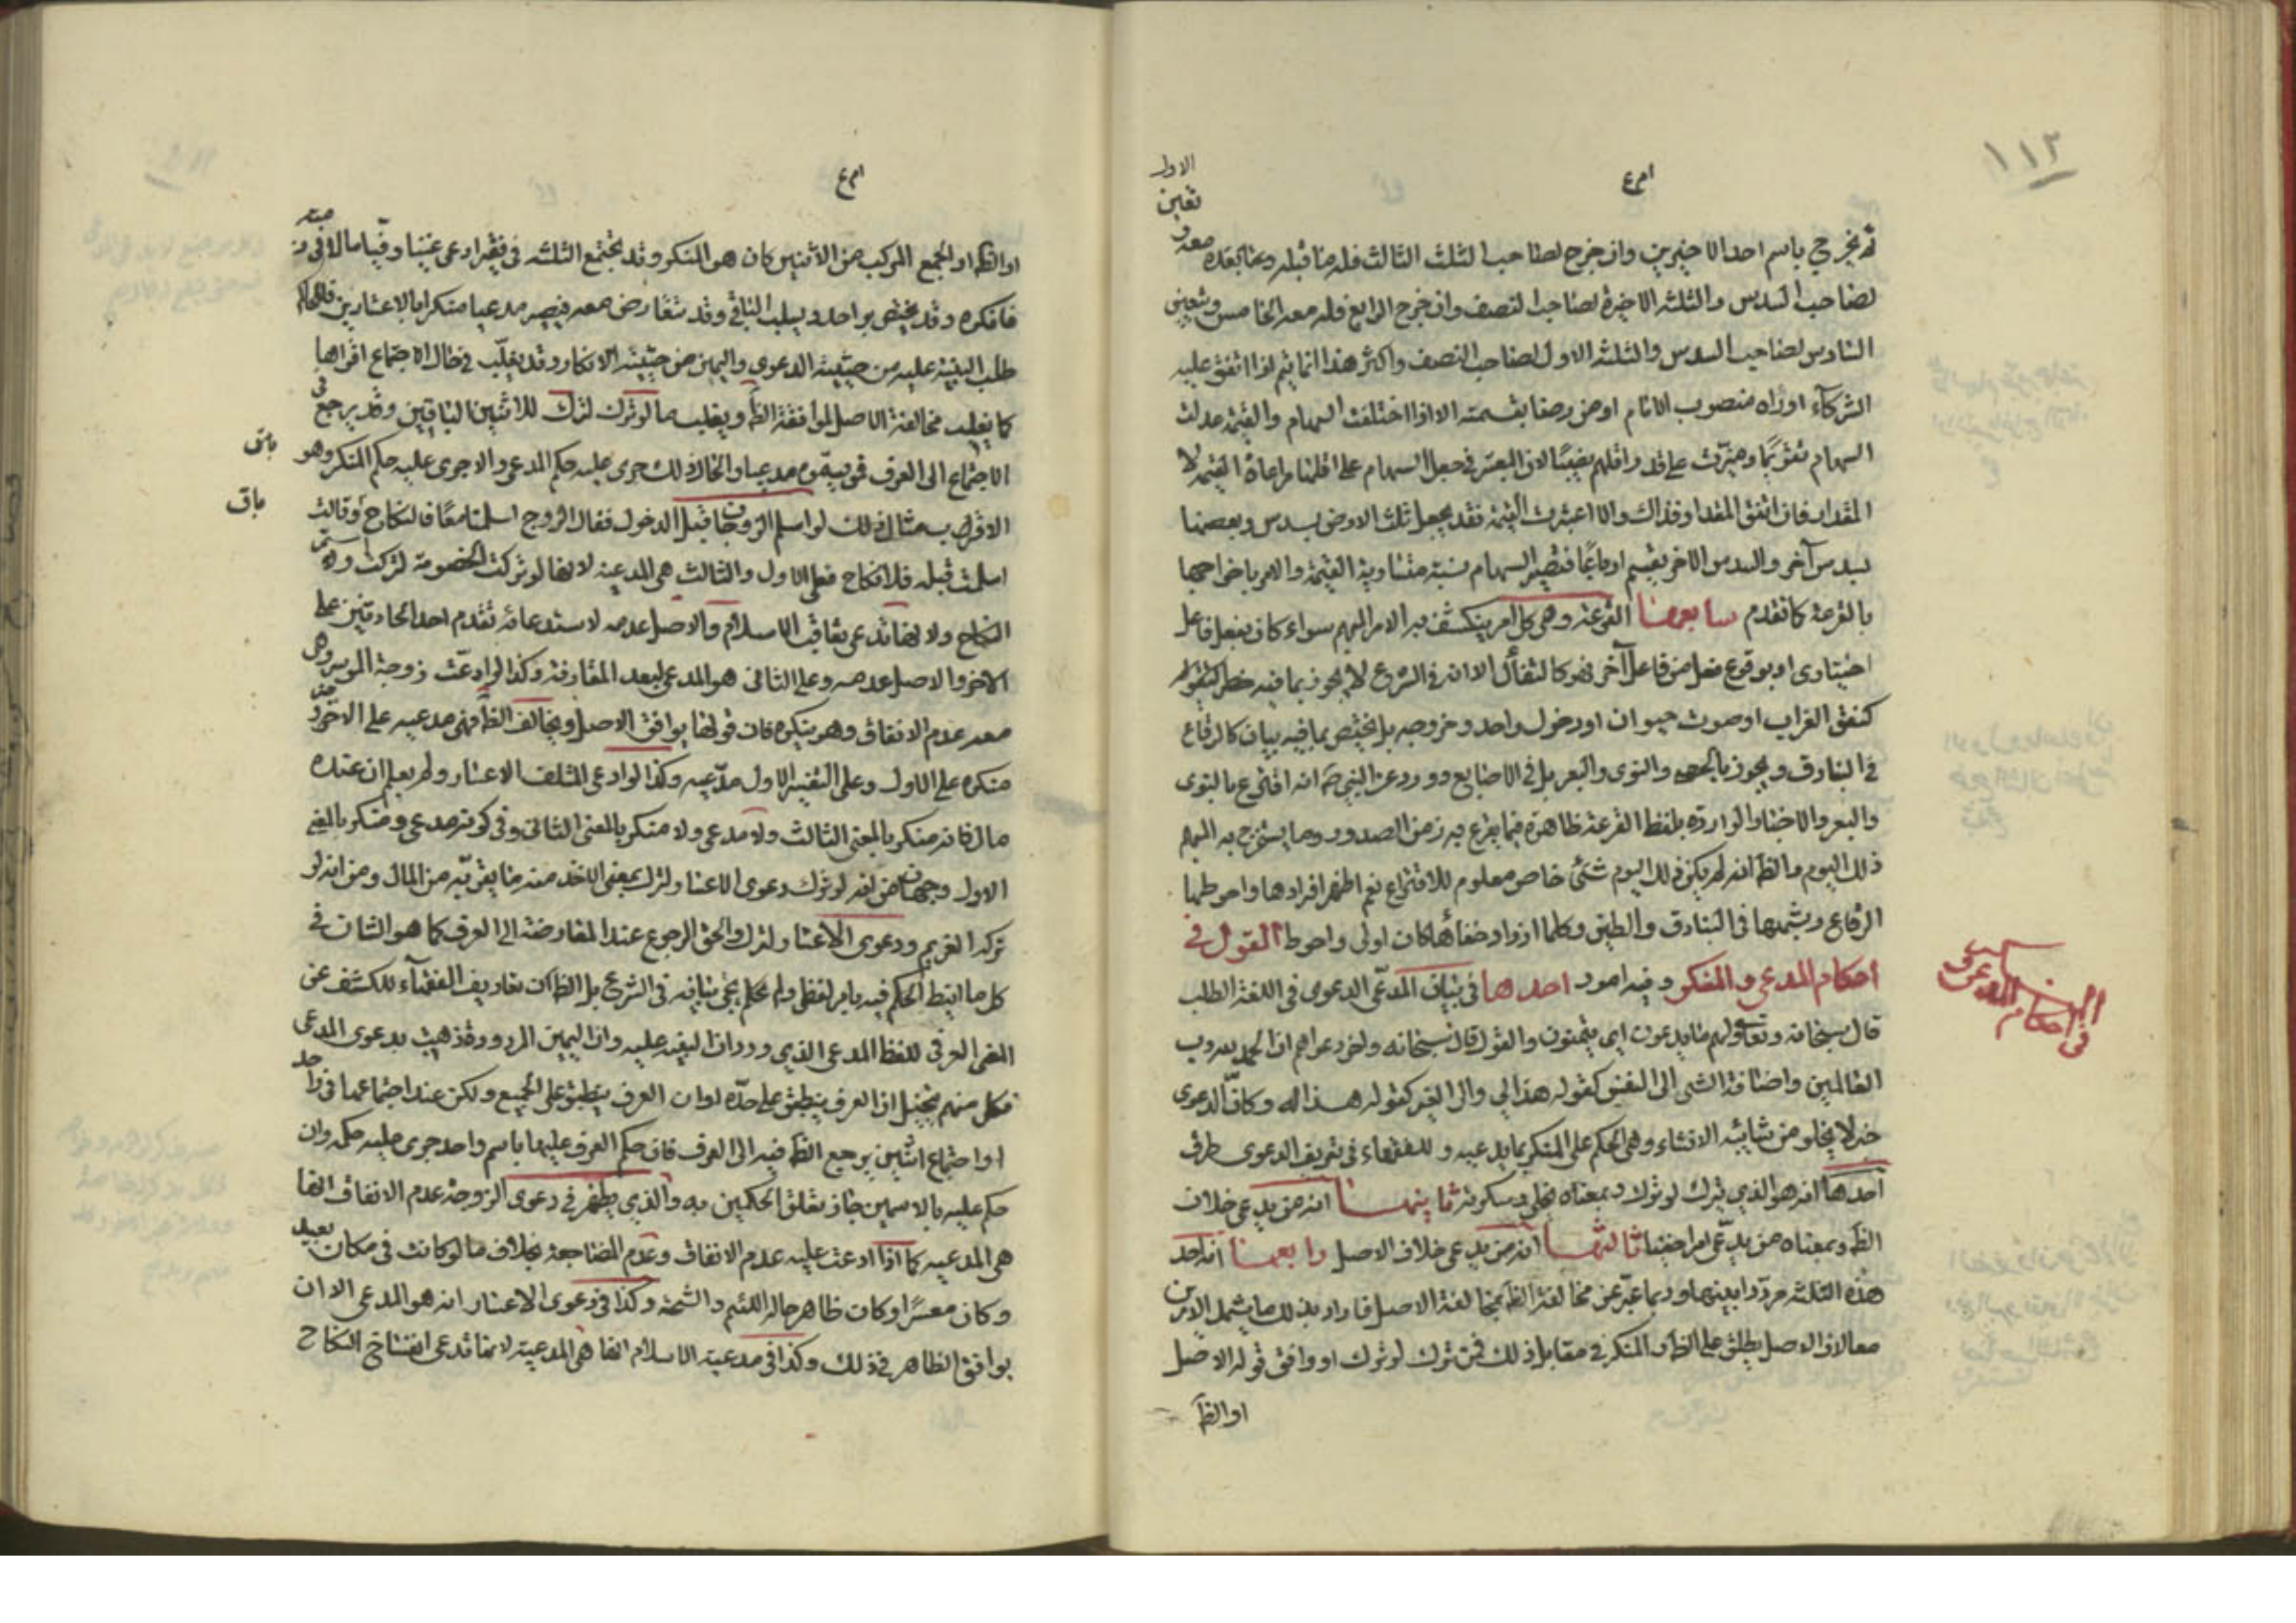 ١١٢
الاول
تعين
ثم يخرج باسم احد الاخيرين وان خرج لصاحب الثلث الثالث فله ما قبله وما بعده
لصاحب السدس والثلثه الاخيرة لصاحب النصف وان خرج الرابع فله معه الخامس وتعين
السادس لصاحب السدس والثلثه الاول لصاحب النصف واكثر هذا انما يتم اذا اتفق عليه
الشركآء او رٰاه منصوب الامام او من رضا بقسمته الا اذا اختلفت السهام والقيمه عدلت
السهام تقويمًا وميّزت على قدر اقلهم نصيبًا لان العبرة في جعل السهام على اقلها مراعاة القيمه لا
المقدار فان اتفق المقدار فذاك والا اعتبرت القيمة فقد يجعل ثلث الارض بسدس وبعضها
بسدس آخر والسدس الاخر يقسم ارباعًا فتصير السهام متساوية القيمة والامر باخراجها
بالقرعة كما تقدم سابعها القرعه وهي كل امر ينكشف به الامر المبهم سواء كان بفعل فاعل
اختيارى او بوقوع فعل من فاعل آخر فهو كالتفأل الا انه في الشرع لا يجوز بما فيه خطر
كنعق الغراب او صوت حيوان او دخول واحد وخروجه بل يختص بما فيه بيان كالرقاع
في البنادق ويجوز بالحصى والنوى والبعر بل في الاصابع وورد عن النبي انه اقترع بالنوى
والبعر والاخبار الوارده بلفظ القرعة ظاهرة فيما يقرع به زمن الصدور وما يستخرج به المبهم
ذلك اليوم والظ انه لم يكن ذلك اليوم شئ خاص معلوم للاقتراع نعم اظهر افرادها واحوطها
الرقاع ويشملها في البنادق والطين وكلما ازداد خفاءها كان اولى واحوط القول في
احكام المدعي والمنكر وفيه امور احدها في بيان المدّعى الدعوى في اللغة الطلب
القول في احكام المدعى
قال سبحانه وتعالى ولهم ما يدعون اى يتمنون والقول قال سبحانه واخر دعواهم ان الحمد لله رب
العالمين واضافة الشئ الى النفس كقوله هذا لي والى الغير كقوله هذا له وكان الدعوى
خبر لا يخلو من شائبه الانشاء وهي الحكم على المنكر بما يدعيه وللفقهاء في تعريف الدعوى طرق
احدها انه هو الذي يترك لو ترك وبمعناه يخلى وسكوته ثانيها انه من يدعى خلاف
الظ وبمعناه من يدّعى امرا خفيا ثالثها انه من يدعى خلاف الاصل رابعها انه احد
هذه الثلثه مردّدا بينها وربما عبّر عن مخالفة الظ بمخالفة الاصل فاراد بذلك ما يشمل الامرين
معا لان الاصل يطلق على الظ والمنكر في مقابل ذلك فمن ترك لو ترك او وافق قوله الاصل
او الظ
او الظ او الجمع المركب من الاثنين كان هو المنكر وقد تجتمع الثلثه في فقير ادعى غنيا وقيما مالا في ذمته
فانكره وقد يختص بواحد ويسلب الباقي وقد تتعارض معه فيصير مدعيا منكرا بالاعتبارين فللحاكم
طلب البينة عليه من حيثية الدعوى واليمين من حيثية الانكار وقد يغلّب في حال الاجتماع اقواها
كما يغلب مخالفة الاصل لموافقة الظ ويغلب ما لو ترك لترك للاثنين الباقيين وقد يرجع في
الاجتماع الى العرف فمن يسمّونه مدعيا والحال ذلك جرى عليه حكم المدعى والا جرى عليه حكم المنكر وهو
الاقرب مثال ذلك لو اسلم الزوجان قبل الدخول فقال الزوج اسلمنا معًا فالنكاح باق وقالت
باق
اسلمت قبله فلا نكاح فعلى الاول والثالث هي المدعيه لانها لو تركت الخصومة لتركت واستمر
النكاح ولانها تدعى تعاقب الاسلام والاصل عدمه لاستدعائه تقدم احد الحادثين على
الاخر والاصل عدمه وعلى الثاني هو المدعى لبعد المقارنة وكذا لو ادعت زوجة الموسر وهي
معه عدم الانفاق وهو ينكره فان قولها يوافق الاصل ويخالف الظ فهى مدعيه على الاخر
منكره على الاول وعلى التفسير الاول مدّعيه وكذا لو ادعى المتلف الاعسار ولم يعلم ان عنده
مال فانه منكر بالمعنى الثالث ولا مدعى ولا منكر بالمعنى الثاني وفي كونه مدعى ومنكر بالمعنى
الاول وجهان من انه لو ترك دعوى الاعسار لترك بمعنى الاخذ منه ما يقرّبه من المال ومن انه لو
تركه الغريم ودعوى الاعسار لترك والحق الرجوع عند المعارضة الى العرف كما هو الشان في
كل ما انيط الحكم فيه بامر لفظى ولم يجئ بيانه في الشرع بل الظ ان تعاريف الفقهآء للكشف عن
المعنى العرفي للفظ المدعى الذي ورد ان البينه عليه وان اليمين المردودة ذهبت بدعوى المدعى
فكل منهم يتخيل ان العرف ينطبق على حدّه او ان العرف ينطبق على الجميع ولكن عند اجتماعها في واحد
او اجتماع اثنين يرجع الظ فيه الى العرف فان حكم العرف عليها باسم واحد جرى عليه حكمه وان
حكم عليه بالاسمين جاز تعلق الحكمين به والذي يظهر في دعوى الزوجة عدم الانفاق انها
هي المدعيه كما اذا ادعت عليه عدم الانفاق وعدم المضاجعة بخلاف ما لو كانت في مكان بعيد
وكان معسرًا وكان ظاهر حاله اللئم والشحة وكذا في دعوى الاعسار انه هو المدعى الا ان
يوافق الظاهر في ذلك وكذا في مدعية الاسلام انها هي المدعية لانها تدعى انفساخ النكاح